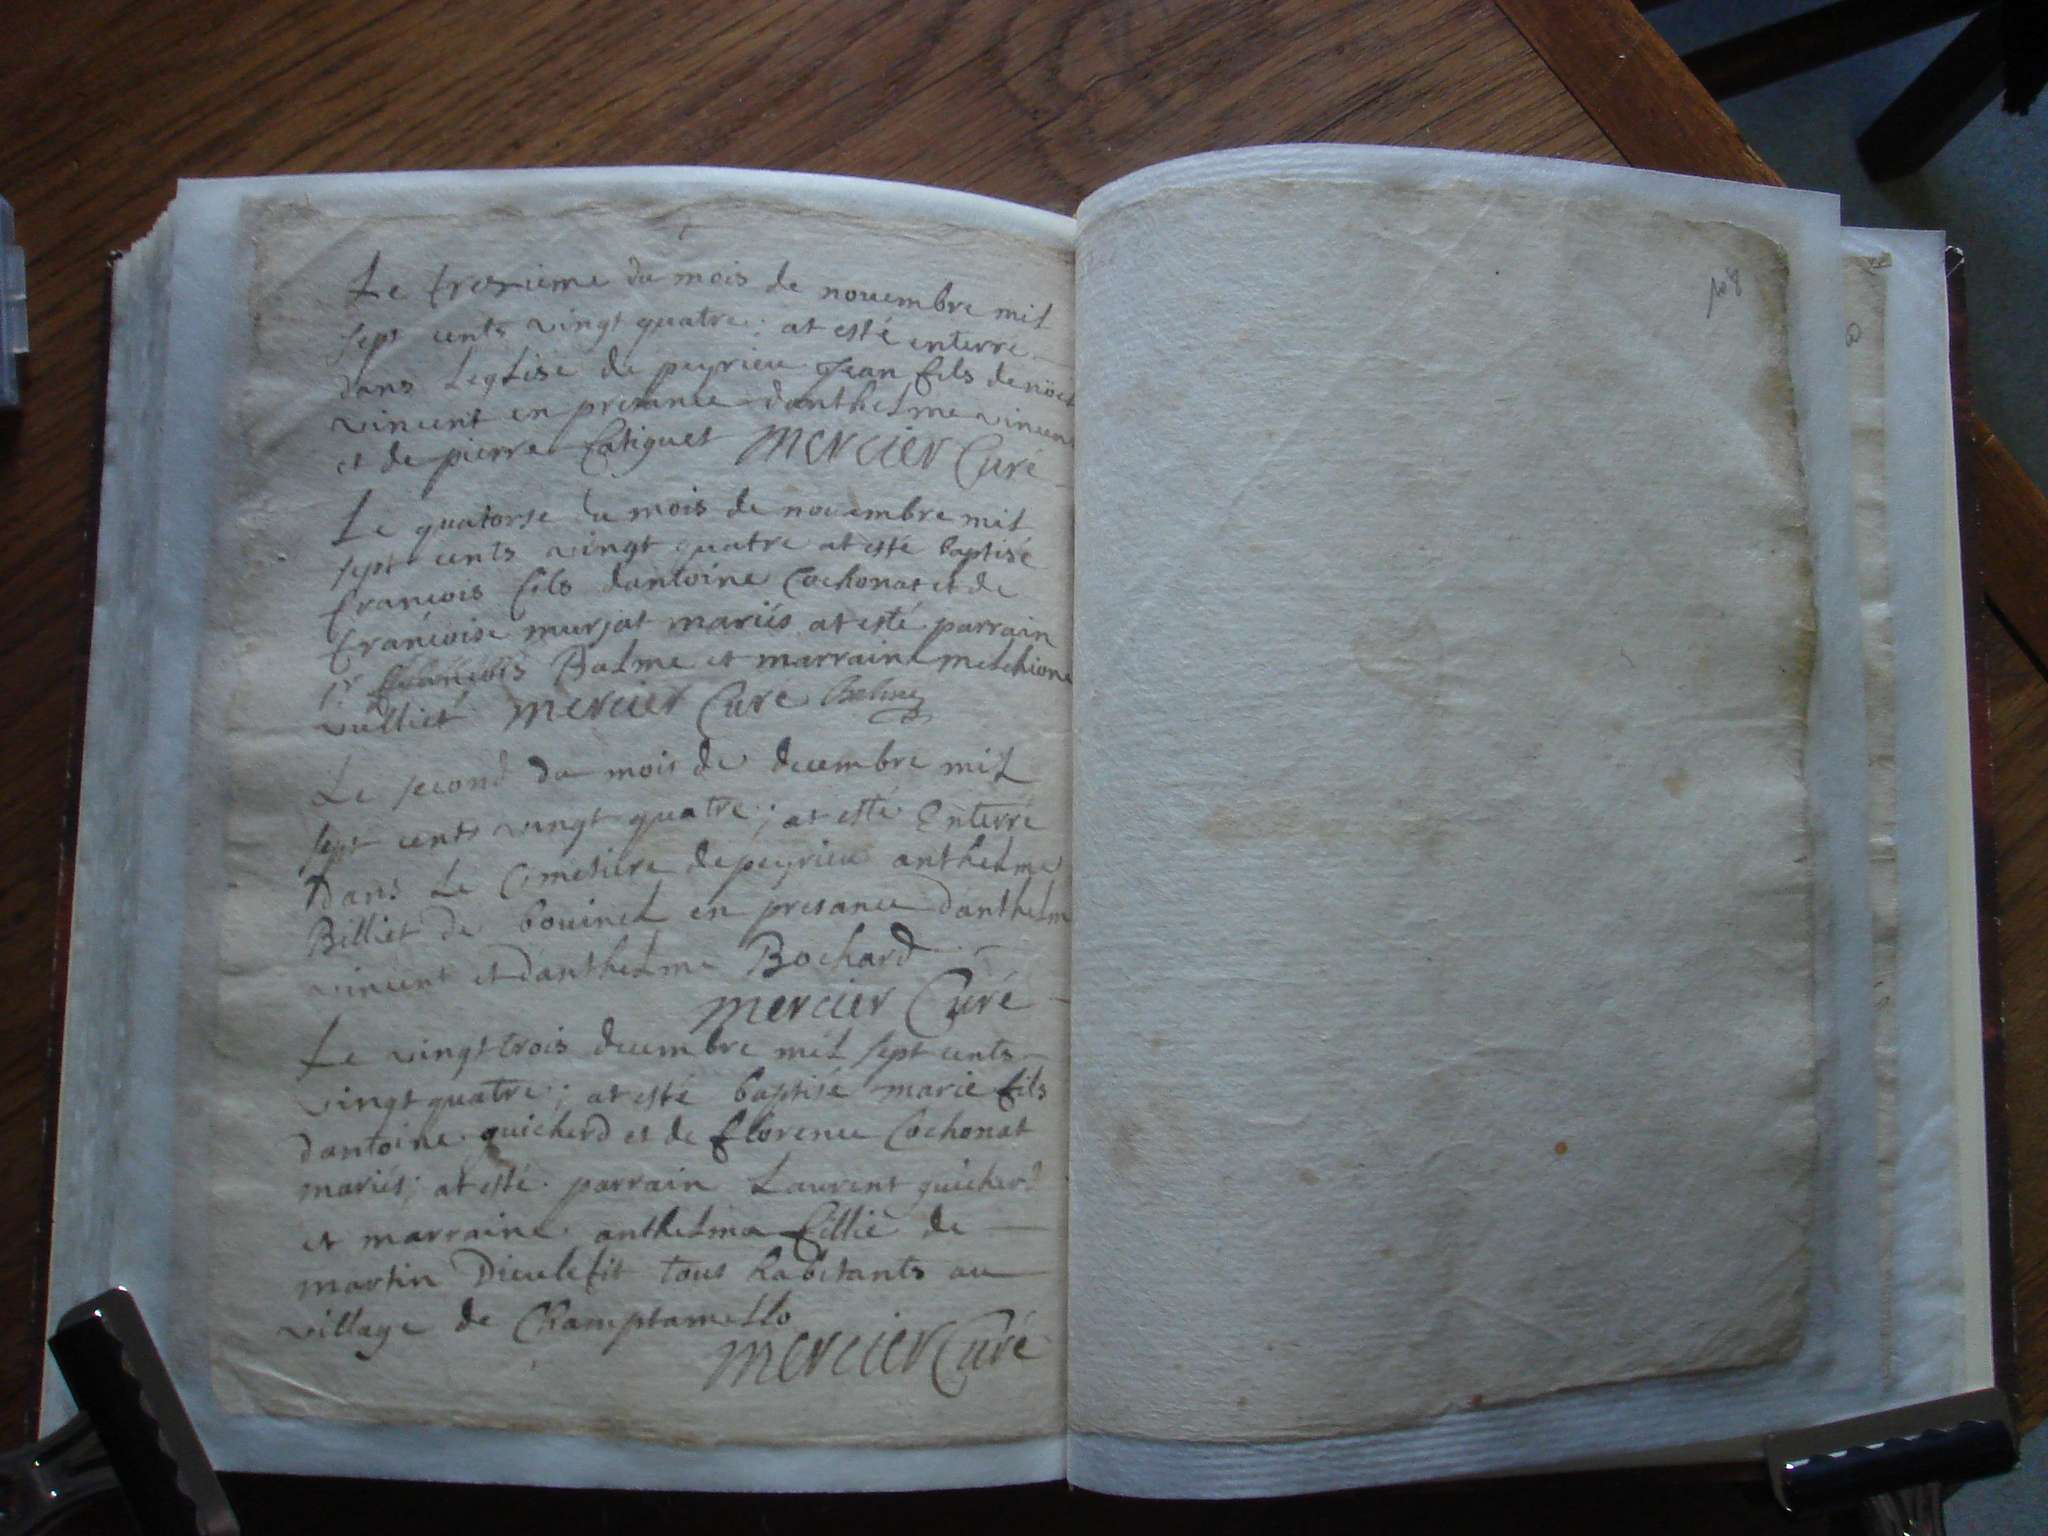 Le tresieme du mois de novembre mil
sept cents vingt quatre; at esté enterre
dans Leglise de peyrieu Jean fils de nöel
vincent en presance danthelme vincent
et de pierre Catiguet mercier Curé
Le quatorse du mois de novembre mil
sept cents vingt quatre at esté baptisé
francois fils dantoine Cochonat et de
francoise murjat mariés at esté parrain
sr francois Balme et marraine melchione
vulliet mercier Curé Balme
Le second du mois de decembre mil
sept cents vingt quatre; at esté Enterré
Dans Le Cimetiere de peyrieu anthelme
Billiet de bovinel en presance danthelm
vincent et danthelme Bochard
mercier Curé
Le vingt trois decembre mil sept cents
vingt quatre; at esté baptisé marie fils
dantoine guicherd et de florence Cochonat
mariés; at esté parrain Laurent guicherd
et marraine anthelma fillié de
martin Dieulefit tous habitants au
village de Champtamello
mercier Curé
108